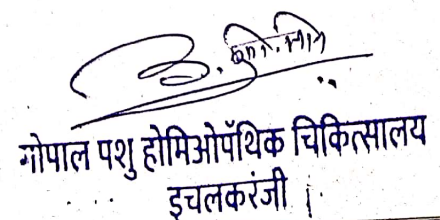 गोपाल पशु होमिओपॅथिक चिकित्सालय
इचलकरंजी